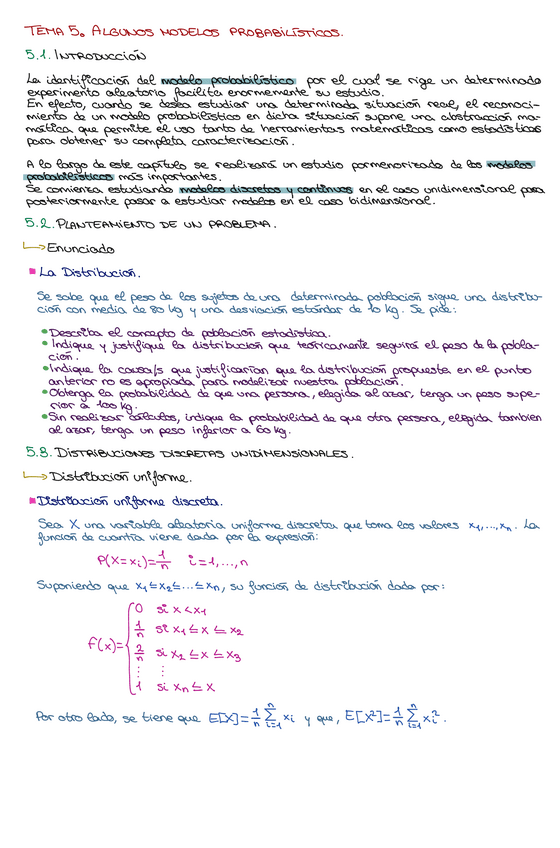 TEMA 5. ALGUNOS MODELOS PROBABILÍSTICOS.
5.1. INTRODUCCIÓN
La identificación del modelo probabilístico por el cual se rige un determinado
experimento aleatorio facilita enormemente su estudio.
En efecto, cuando se desea estudiar una determinada situación real, el reconoci-
miento de un modelo probabilístico en dicha situación supone una abstracción ma-
mática que permite el uso tanto de herramientas matemáticas como estadísticas
para obtener su completa caracterización.
A lo largo de este capítulo se realizará un estudio pormenorizado de los modelos
probabilísticos más importantes.
Se comienza estudiando modelos discretos y continuos en el caso unidimensional para
posteriormente pasar a estudiar modelos en el caso bidimensional.
5.2. PLANTEAMIENTO DE UN PROBLEMA.
↳Enunciado
■ La Distribución.
Se sabe que el peso de los sujetos de una determinada población sigue una distribu-
ción con media de 80 kg y una desviación estándar de 10 kg. Se pide:
• Describa el concepto de población estadística.
• Indique y justifique la distribución que teóricamente seguirá el peso de la pobla-
ción.
• Indique la causa/s que justificarían que la distribución propuesta en el punto
anterior no es apropiada para modelizar nuestra población.
• Obtenga la probabilidad de que una persona, elegida al azar, tenga un peso supe-
rior a 100 kg.
• Sin realizar cálculos, indique la probabilidad de que otra persona, elegida también
al azar, tenga un peso inferior a 60 kg.
5.3. DISTRIBUCIONES DISCRETAS UNIDIMENSIONALES.
↳Distribución uniforme.
■ Distribución uniforme discreta.
Sea X una variable aleatoria uniforme discreta que toma los valores x₁,...,xₙ. La
función de cuantía viene dada por la expresión:
P(X=xᵢ)=1/n i=1,...,n
Suponiendo que x₁≤x₂≤...≤xₙ, su función de distribución dada por:
0 si x<x₁
1/n si x₁≤x≤x₂
F(x)= 2/n si x₂≤x≤x₃
⋮ ⋮
1 si xₙ≤x
Por otro lado, se tiene que E[X]=1/n Σⁿᵢ₌₁ xᵢ y que, E[X²]=1/n Σⁿᵢ₌₁ xᵢ².